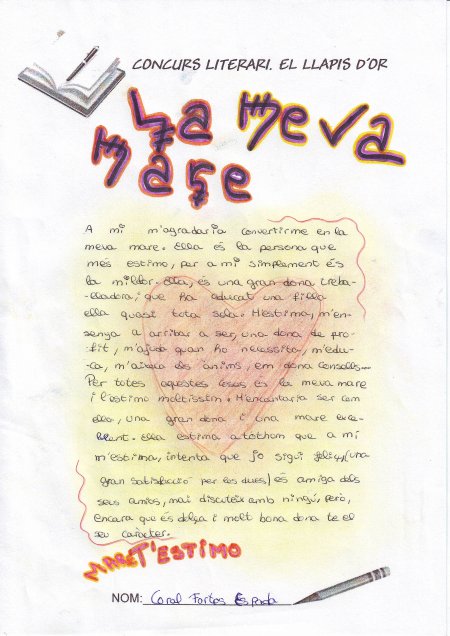 CONCURS LITERARI. EL LLAPIS D'OR
La meva
mare
A mi m'agradaria convertirme en la
meva mare. Ella és la persona que
més estimo, per a mi simplement és
la millor. Ella, és una gran dona treba-
lladora, i que ha educat una filla
ella quasi tota sola. M'estima, m'en-
senya a arribar a ser, una dona de pro-
fit, m'ajuda quan ho necessito, m'edu-
ca, m'aixeca els ànims, em dona consells...
Per totes aquestes coses és la meva mare
i l'estimo moltíssim. M'encantaria ser com
ella, una gran dona i una mare exce-
lent. Ella estima a tothom que a mi
m'estima, intenta que jo sigui feliç, (una
gran satisfacció per les dues) és amiga dels
seus amics, mai discuteix amb ningú, però,
encara que és dolça i molt bona dona te el
seu caràcter.
MARE T'ESTIMO
NOM: Coral Fortes Espada